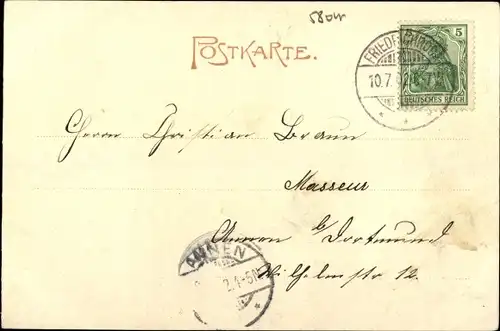 58 or
POSTKARTE.
FRIEDRICHRODA
10.7.02 6-7N
5
DEUTSCHES REICH
Herrn Christian Braun
Masseur
Annen b/ Dortmund
Wilhelmstr 12.
ANNEN
2.4-5N